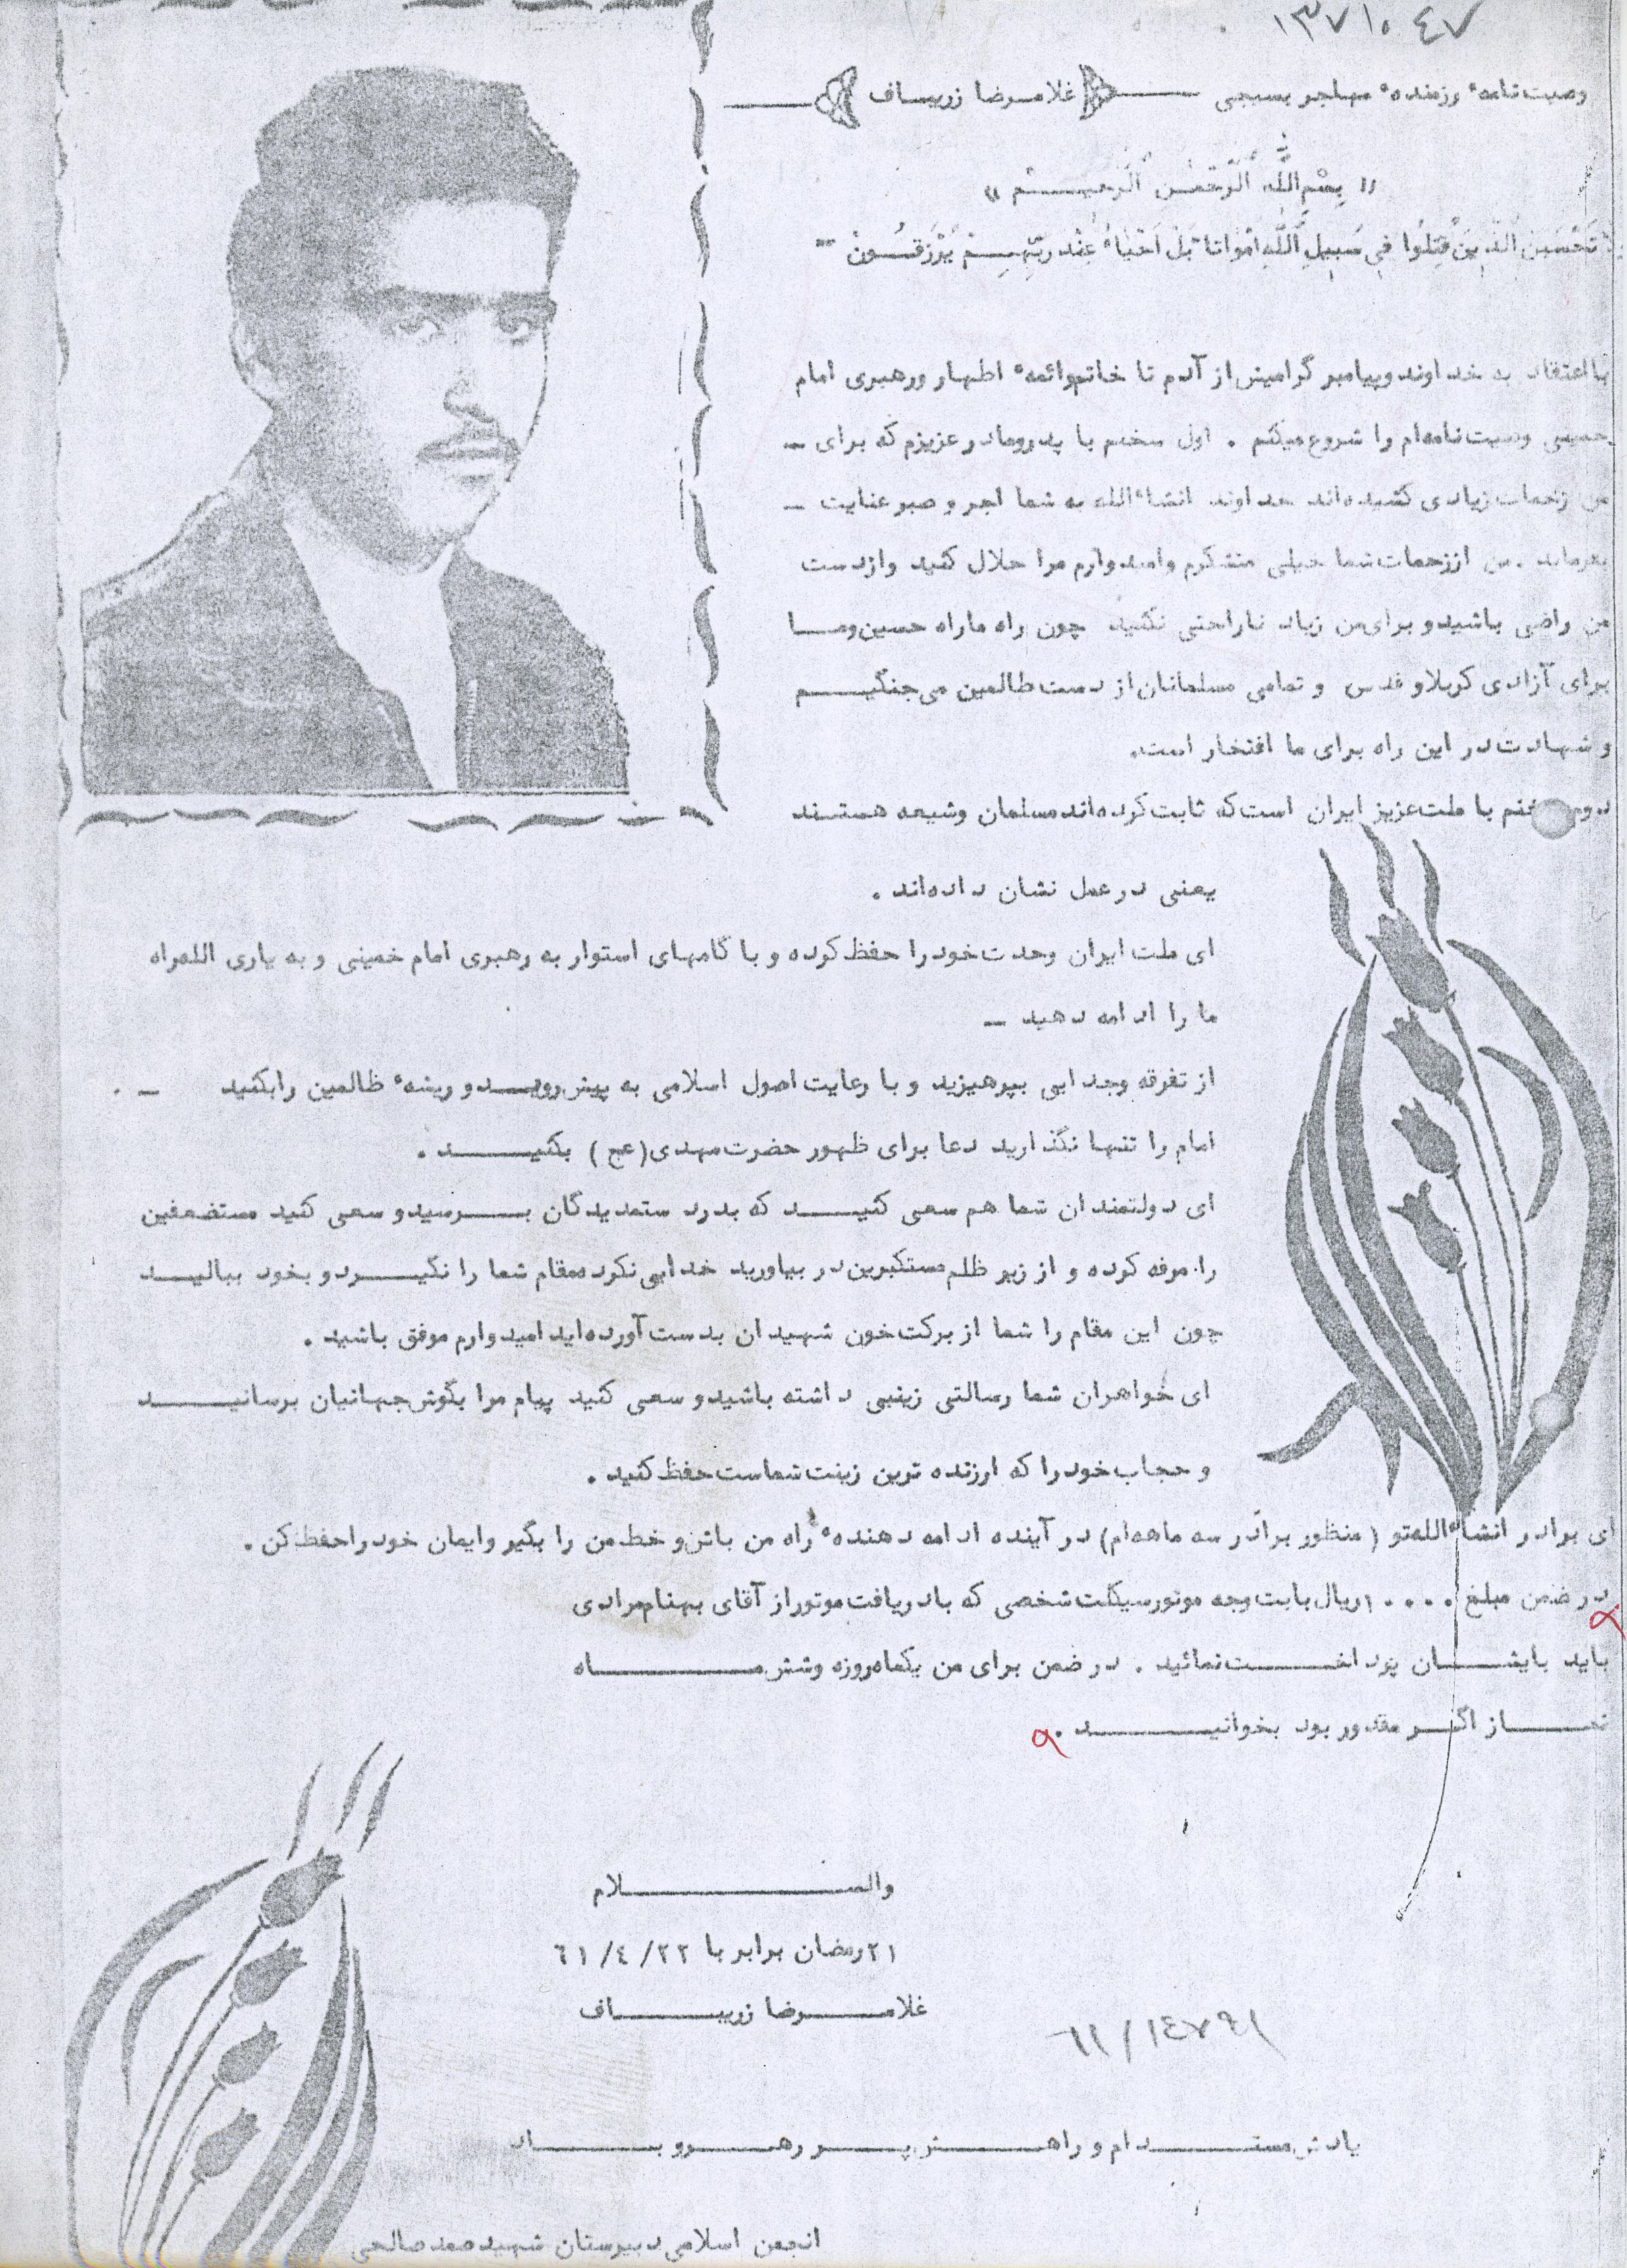 ١٣٧١٠٤٧
وصیت‌نامهٔ رزمندهٔ مهاجر بسیجی غلامرضا زریباف
« بِسْمِ اللَّهِ الرَّحْمٰنِ الرَّحیم »
تَحْسَبَنَ الَّذینَ قُتِلُوا فی سَبیلِ اللَّهِ اَمْواتا بَلْ اَحْیاءٌ عِنْدَ رَبِّهِمْ یُرْزَقُونْ
با اعتقاد به خداوند و پیامبر گرامیش از آدم تا خاتم وائمهٔ اطهار ورهبری امام
خمینی وصیت‌نامه‌ام را شروع میکنم . اول سخنم با پدر ومادر عزیزم که برای –
من زحمات زیادی کشیده‌اند خداوند انشاءالله به شما اجر و صبر عنایت –
بفرماید . من از زحمات شما خیلی متشکرم وامیدوارم مرا حلال کنید وازدست
من راضی باشید و برای من زیاد ناراحتی نکنید چون راه ما راه حسین وما
برای آزادی کربلا و قدس و تمامی مسلمانان از دست ظالمین می‌جنگیم
و شهادت در این راه برای ما افتخار است.
با ملت عزیز ایران است که ثابت کرده‌اند مسلمان وشیعه هستند
یعنی در عمل نشان داده‌اند .
ای ملت ایران وحدت خود را حفظ کرده و با گامهای استوار به رهبری امام خمینی و به یاری الله راه
ما را ادامه دهید –
از تفرقه وجدایی بپرهیزید و با رعایت اصول اسلامی به پیش روید و ریشهٔ ظالمین را بکنید – .
امام را تنها نگذارید دعا برای ظهور حضرت مهدی(عج) بکنید .
ای دولتمندان شما هم سعی کنید که بدرد ستمدیدگان برسید و سعی کنید مستضعفین
را مرفه کرده و از زیر ظلم مستکبرین در بیاورید خدایی نکرده مقام شما را نگیرد و بخود ببالید
چون این مقام را شما از برکت خون شهیدان بدست آورده‌اید امیدوارم موفق باشید .
ای خواهران شما رسالتی زینبی داشته باشید و سعی کنید پیام مرا بگوش جهانیان برسانید
و حجاب خود را که ارزنده ترین زینت شماست حفظ کنید .
ای برادر انشاءالله تو ( منظور برادر سه ماهه‌ام) در آینده ادامه دهندهٔ راه من باش و خط من را بگیر وایمان خود را حفظ کن .
در ضمن مبلغ ١٠٠٠٠ ریال بابت وجه موتورسیکلت شخصی که با دریافت موتور از آقای بهنام مرادی
باید بایشان پرداخت نمائید . در ضمن برای من یکماه روزه وشش ماه
نماز اگر مقدور بود بخوانید .
والسلام
٢١رمضان برابر با ٢٢/٤/٦١
غلامرضا زریباف
٦١/١٤٧٩١
یادش مستدام و راهش پر رهرو باد
انجمن اسلامی دبیرستان شهید صمد صالحی